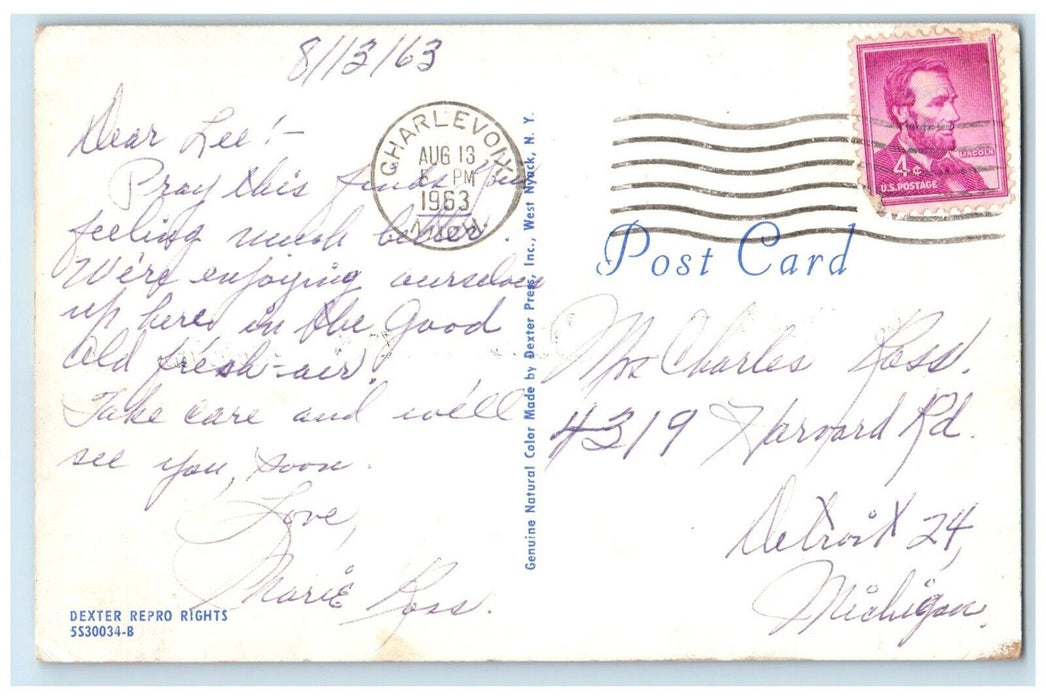 8/13/63
Dear Lee!-
Pray this finds you
feeling much better.
We're enjoying ourselves
up here in the Good
Old fresh-air.
Take care and we'll
see you, soon.
Love,
Marie Ross.
DEXTER REPRO RIGHTS
5S30034-B
CHARLEVOIX
AUG 13
PM
1963
MICH.
Genuine Natural Color Made by Dexter Press, Inc., West Nyack, N. Y.
LINCOLN
4¢
U.S. POSTAGE
Post Card
Mrs Charles Ross.
4319 Harvard Rd.
Detroit 24,
Michigan.